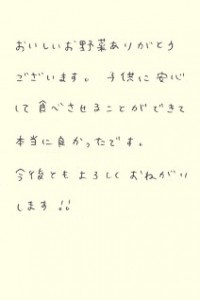 おいしいお野菜ありがとう
ございます。子供に安心
して食べさせることができて
本当に良かったです。
今後ともよろしくおねがい
します!!